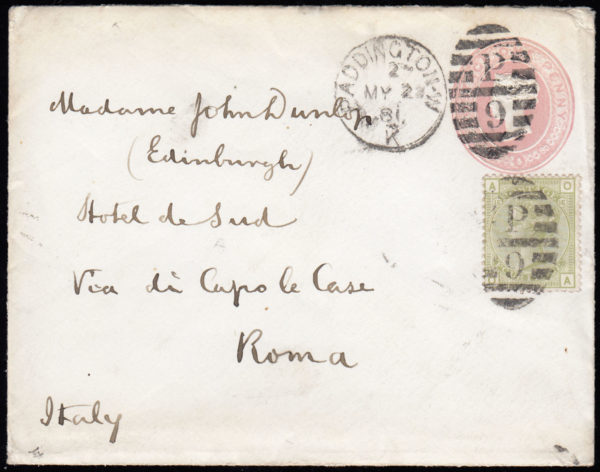 PADDINGTON-W
2
MY 23
81
K
PENNY
P
9
Madame John Dunlop
(Edinburgh)
Hotel de Sud
Via di Capo le Case
Roma
Italy
A O
P
9
O A